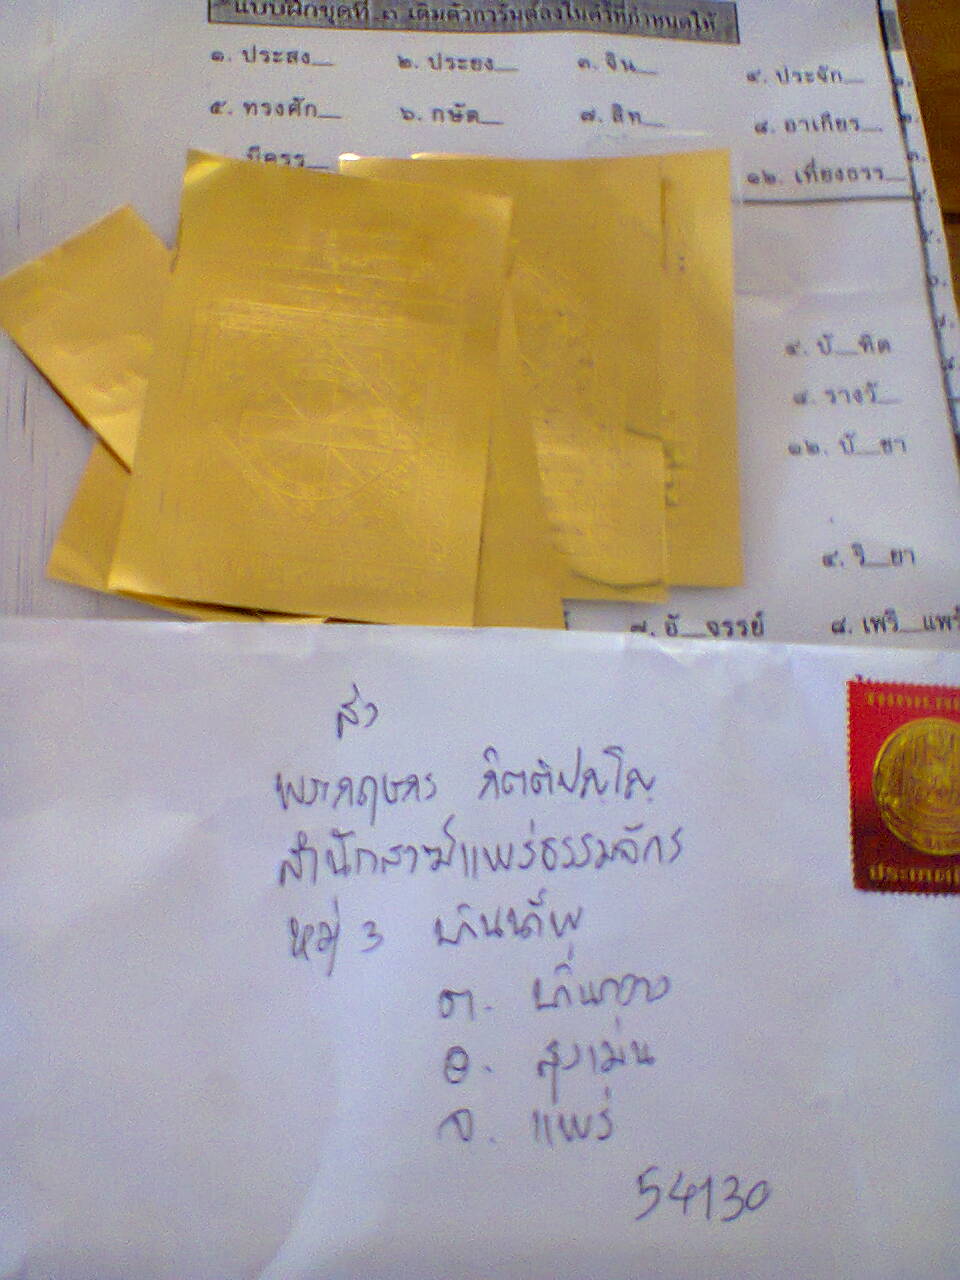 แบบฝึกชุดที่ ๓ เติมตัวการันต์ลงในคำที่กำหนดให้
๑. ประสง__ ๒. ประยง__ ๓. จัน__ ๔. ประจัก__
๕. ทรงศัก__ ๖. กษัต__ ๗. สิท__ ๘. อาเกียร__
๑๒. เที่ยงธรร__
๔. บั__ฑิต
๘. รางวั__
๑๒. บั__ชา
๔. วิ__ยา
๗. อั__จรรย์ ๘. เพริ__แพร้
ส่ง
พระกฤษกร กิตติปญฺโญ
สำนักสงฆ์แพร่ธรรมจักร
หมู่ 3
ต.
อ. สูงเม่น
จ. แพร่
54130